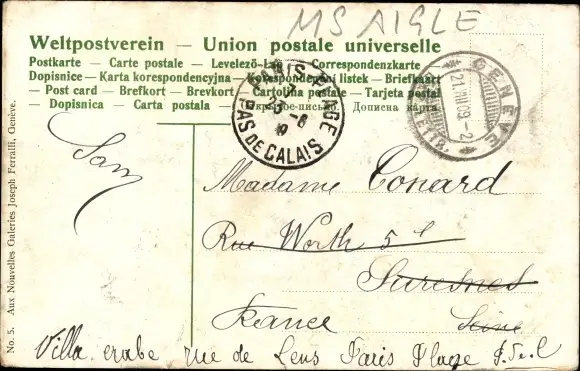 MS AIGLE
Weltpostverein — Union postale universelle
Postkarte — Carte postale — Levelező-Lap — Correspondenzkarte
Dopisnice — Karta korespondencyjna — Korespondenční listek — Briefkaart
— Post card — Brefkort — Brevkort — Cartolina postale — Tarjeta postal
— Dopisnica — Carta postala — письмо — Дописна карта
PARIS-PLAGE
PAS DE CALAIS
GENÈVE
21.VIII.09.-2
Madame Conard
Rue Worth 5
Suresnes
France Seine
Villa rue de Lens Paris Plage
No. 5. Aux Nouvelles Galeries Joseph Ferralli, Genève.